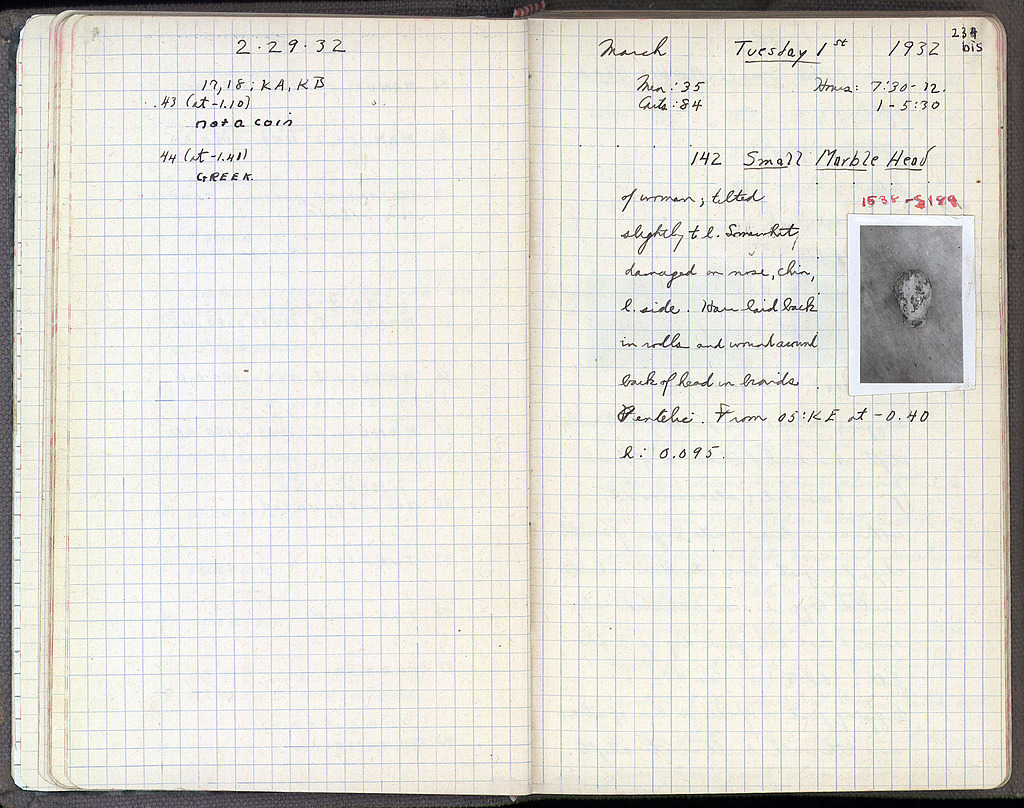 2·29·32
17, 18 : KA, KB
43 (at -1.10)
not a coin
44 (at -1.40)
GREEK.
234
bis
March Tuesday 1st 1932
Men : 35 Hours: 7:30-12.
Carts : 84 1-5:30
142 Small Marble Head
of woman; tilted
1538-S 189
slightly to l. Somewhat
damaged on nose, chin,
l. side. Hair laid back
in rolls and wound around
back of head in braids
Pentelic. From 05:KE at -0.40
h: 0.095.